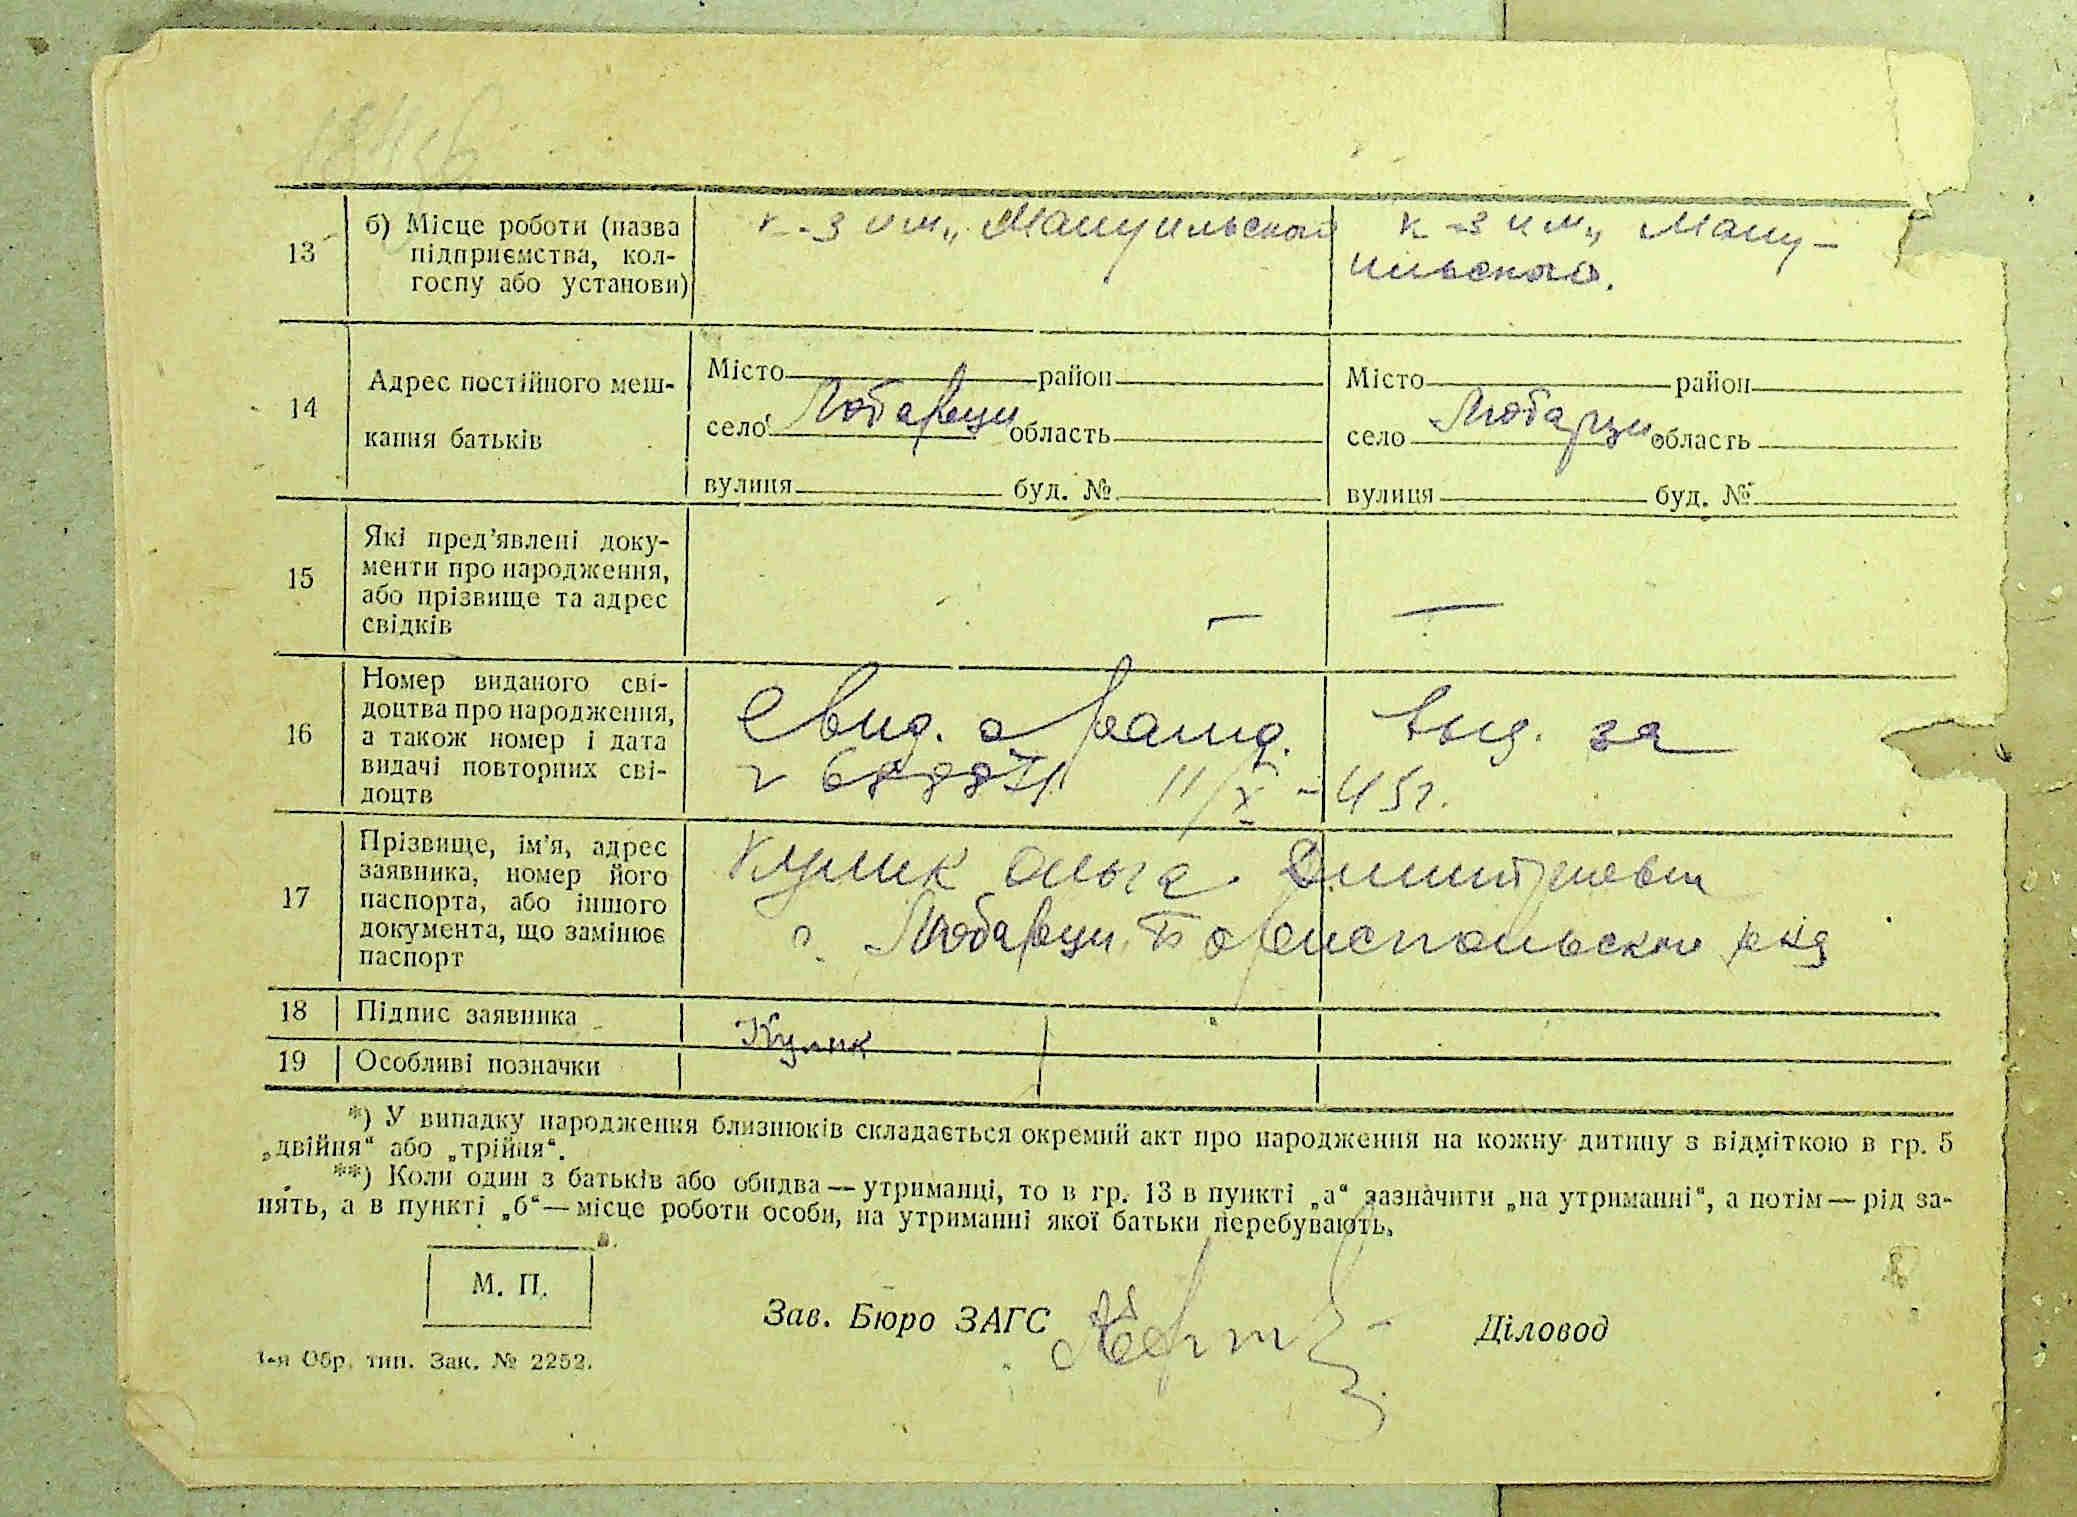 13
б) Місце роботи (назва
підприємства, кол-
госпу або установи)
к-з им. „Мануильского
к-з им. „Ману-
ильского.
14
Адрес постійного меш-
кання батьків
Місто район
село Любарцы область
вулиця буд. №
Місто район
село Любарцы область
вулиця буд. №
15
Які пред’явлені доку-
менти про народження,
або прізвище та адрес
свідків
—
—
16
Номер виданого сві-
доцтва про народження,
а також номер і дата
видачі повторних сві-
доцтв
Свид. о рожд. выд. за
11/X - 45 г.
17
Прізвище, ім’я, адрес
заявника, номер його
паспорта, або іншого
документа, що замінює
паспорт
Кулик Ольга
с. Любарцы, Бориспольского
18
Підпис заявника
Кулик
19
Особливі позначки
*) У випадку народження близнюків складається окремий акт про народження на кожну дитину з відміткою в гр. 5
„двійня“ або „трійня“.
**) Коли один з батьків або обидва — утриманці, то в гр. 13 в пункті „а“ зазначити „на утриманні“, а потім — рід за-
нять, а в пункті „б“ — місце роботи особи, на утриманні якої батьки перебувають.
М. П.
Зав. Бюро ЗАГС
Діловод
1-я Обр. тип. Зак. № 2252.